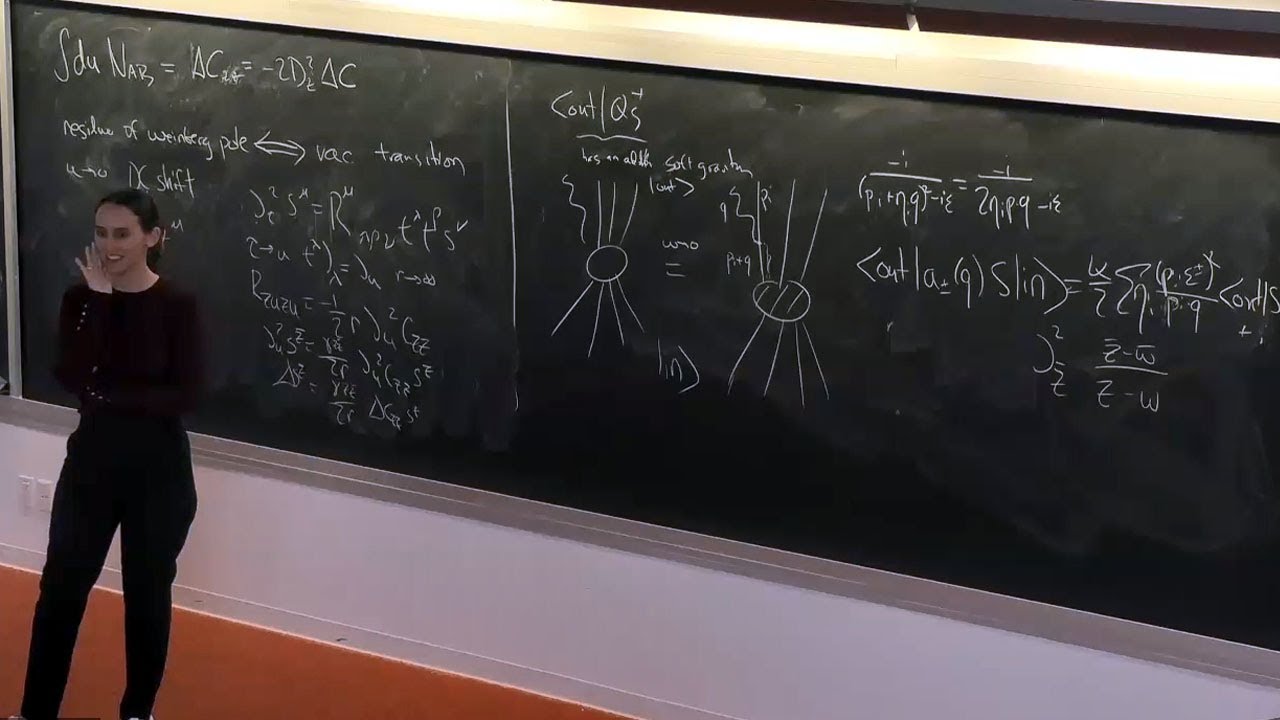 ∫du N_AB = ΔC_zz = -2D_z² ΔC
residue of weinberg pole ⟺ vac transition
u→∞ DC shift
∂_τ² s^μ = R^μ_λρν t^λ t^ρ s^ν
τ→u t^λ ∂_λ = ∂_u r→∞
R_zuzu = -1/2 r ∂_u² C_zz
∂_u² s^z̄ = γ^zz̄/2r ∂_u² C_zz s^z
Δs^z̄ = γ^zz̄/2r ΔC_zz s^z
<out|Q_S^+
has an addtl soft graviton
<out|
q p_i
p_i+q
ω→0
=
|in>
-i/((p_i+η_i q)²-iε) = -i/(2η_i p_i q -iε)
<out|a_±(q) S|in> = ω/2 Σ η_i (p_i·ε^±)²/(p_i·q) <out|S
∂_z̄² (z̄-w̄)/(z-w)